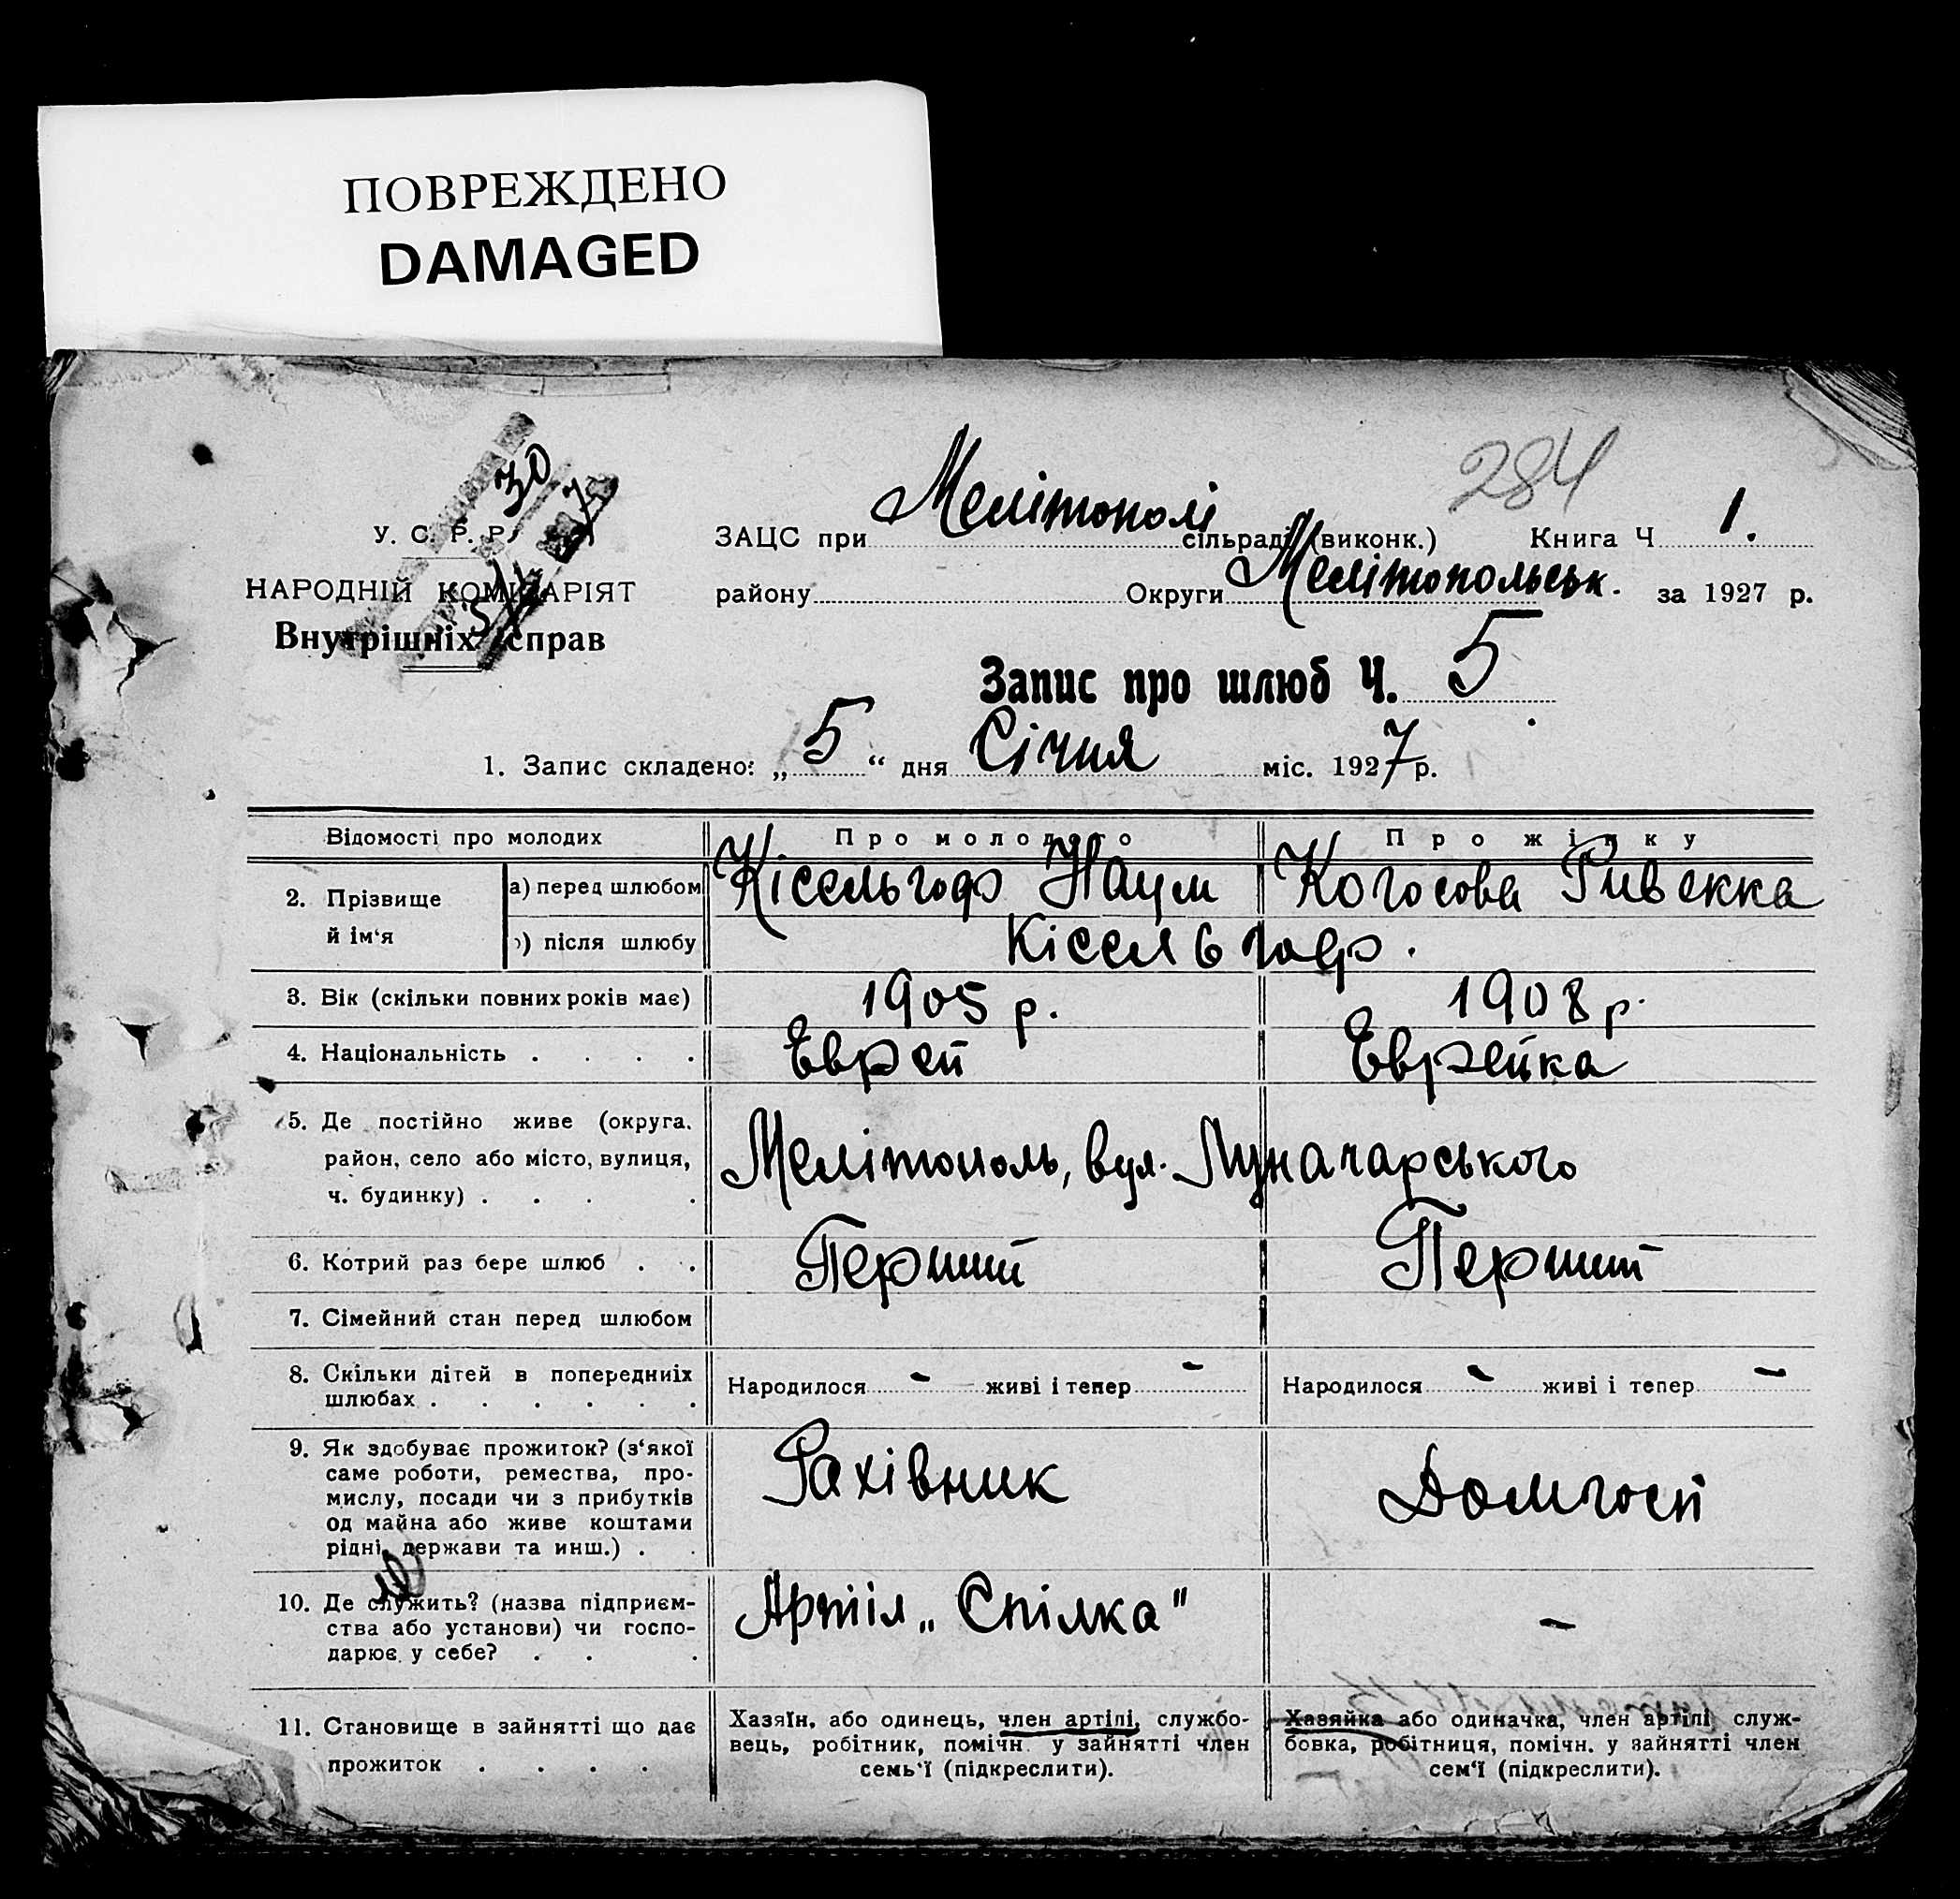 ПОВРЕЖДЕНО
DAMAGED
284
30
У. С. Р. Р.
ЗАЦС при Мелітополі сільраді (виконк.) Книга Ч 1.
НАРОДНІЙ КОМІСАРІЯТ
району Округи Мелітопольськ. за 1927 р.
Внутрішніх справ
Запис про шлюб Ч. 5
1. Запис складено: „5“ дня Січня міс. 1927 р.
Відомості про молодих Про молодого Про жінку
2. Прізвище й ім‘я
а) перед шлюбом Кісельгоф Наум Когосова Ривекка
) після шлюбу Кісельгоф.
3. Вік (скільки повних років має) 1905 р. 1908 р.
4. Національність . . . . Еврей Еврейка
5. Де постійно живе (округа,
район, село або місто, вулиця,
ч. будинку) . . . . Мелітополь, вул. Луначарського
6. Котрий раз бере шлюб . . Перший Перший
7. Сімейний стан перед шлюбом
8. Скільки дітей в попередніїх
шлюбах . . . . . .
Народилося - живі і тепер - Народилося - живі і тепер -
9. Як здобуває прожиток? (з‘якої
саме роботи, ремества, про-
мислу, посади чи з прибутків
од майна або живе коштами
рідні, держави та инш.) . .
Рахівник Домгосп
10. Де служить? (назва підприєм-
ства або установи) чи госпо-
дарює у себе? . . .
Артіл „Спілка" -
11. Становище в зайнятті що дає
прожиток . . . .
Хазяїн, або одинець, член артілі, службо-
вець, робітник, помічн. у зайнятті член
семь‘ї (підкреслити).
Хазяйка або одиначка, член артілі служ-
бовка, робітниця, помічн. у зайнятті член
сем‘ї (підкреслити).